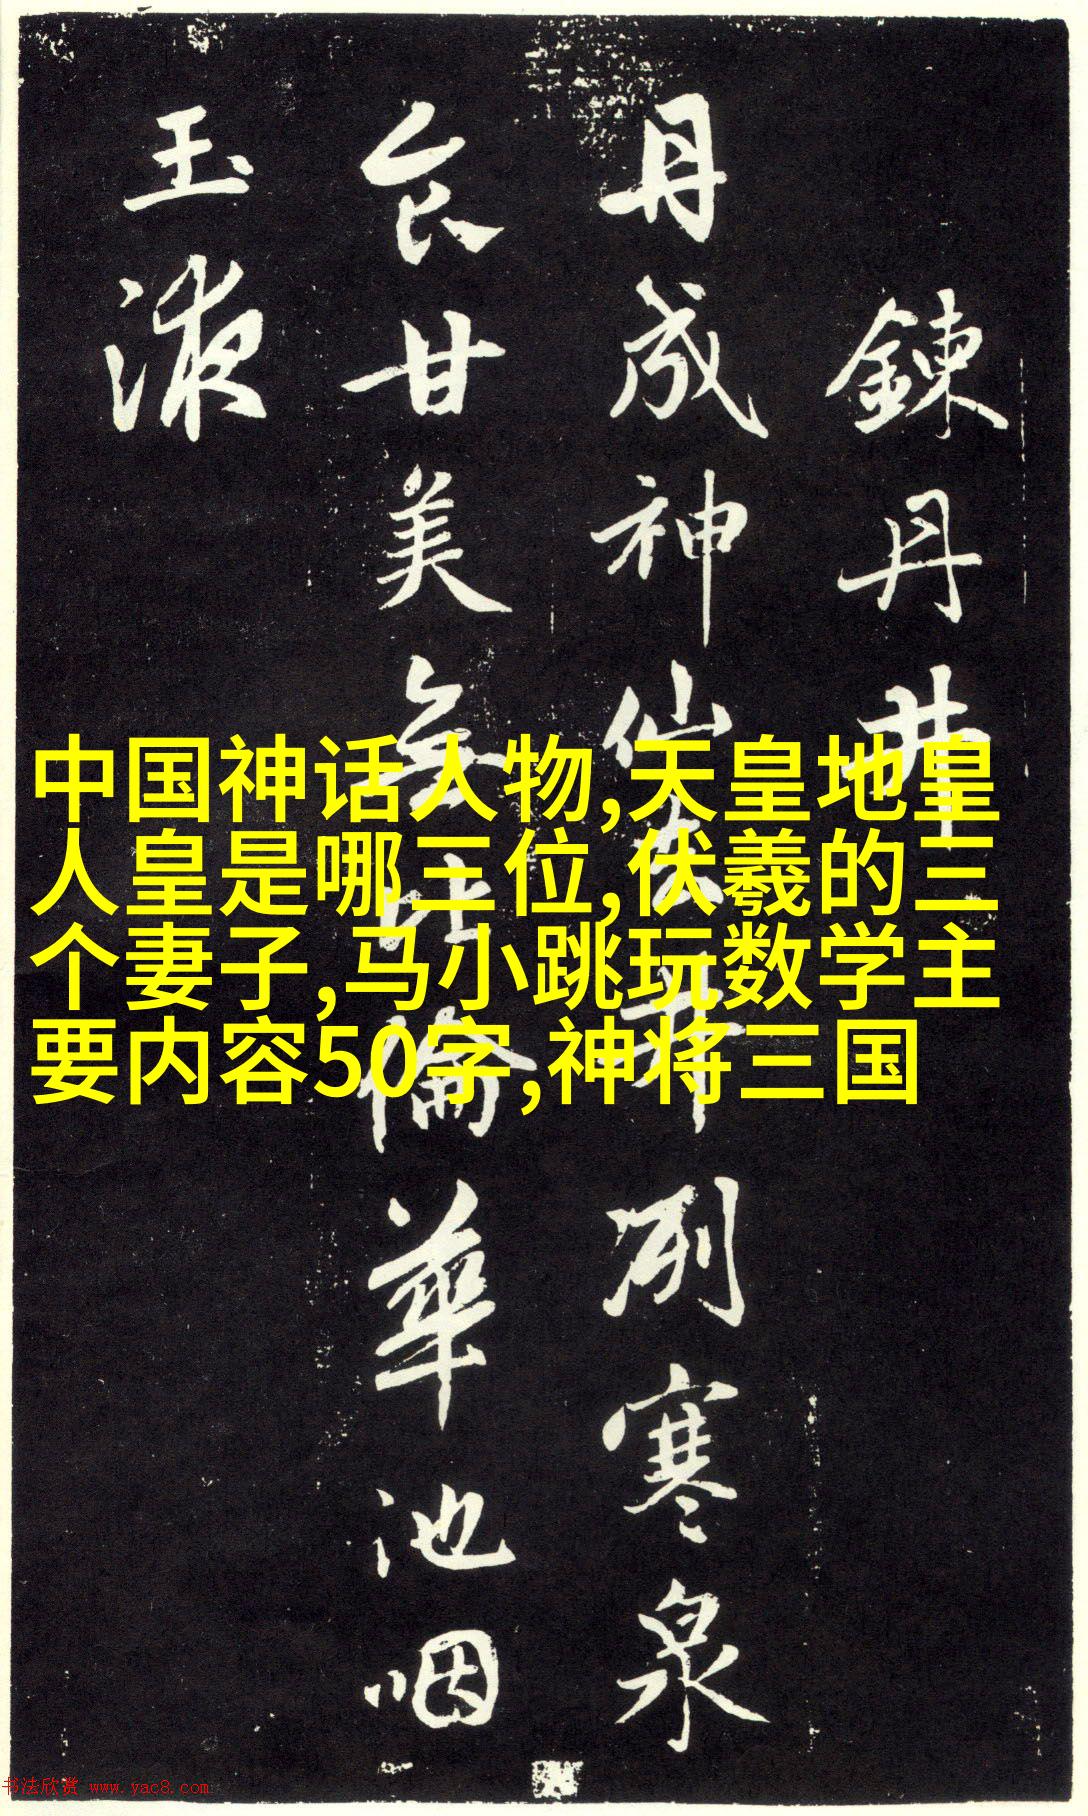 鍊丹井
丹成神仙去井冽寒泉
食甘美無比倫華池咽
玉液
中国神话人物,天皇地皇
人皇是哪三位,伏羲的三
个妻子,马小跳玩数学主
要内容50字,神将三国
书法欣赏 www.yac8.com